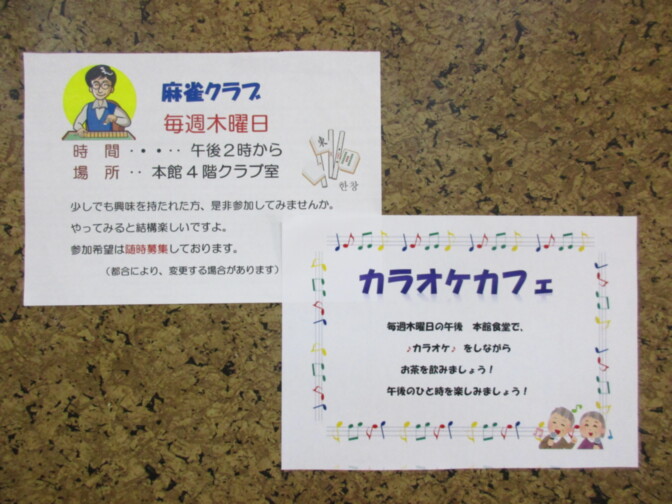 麻雀クラブ
毎週木曜日
時　間 ‥・・‥ 午後２時から
場　所 ‥ 本館４階クラブ室
東
한장
少しでも興味を持たれた方、是非参加してみませんか。
やってみると結構楽しいですよ。
参加希望は随時募集しております。
（都合により、変更する場合があります）
カラオケカフェ
毎週木曜日の午後　本館食堂で、
♪カラオケ♪ をしながら
お茶を飲みましょう！
午後のひと時を楽しみましょう！